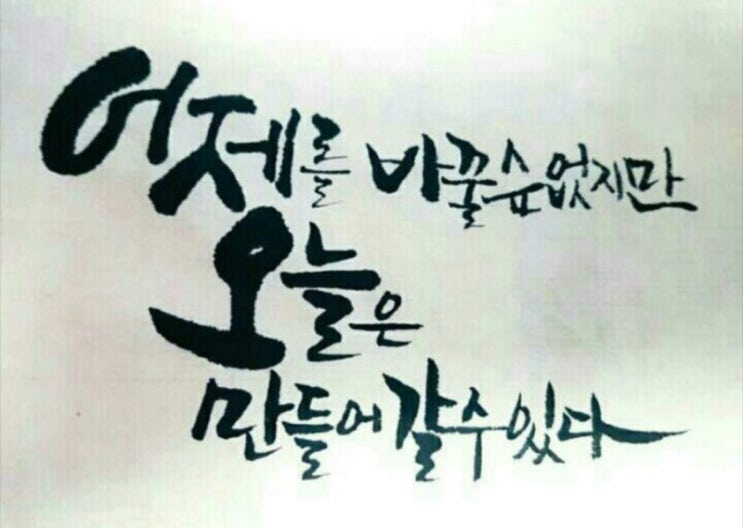 어제를 바꿀 수 없지만
오늘은
만들어 갈 수 있다